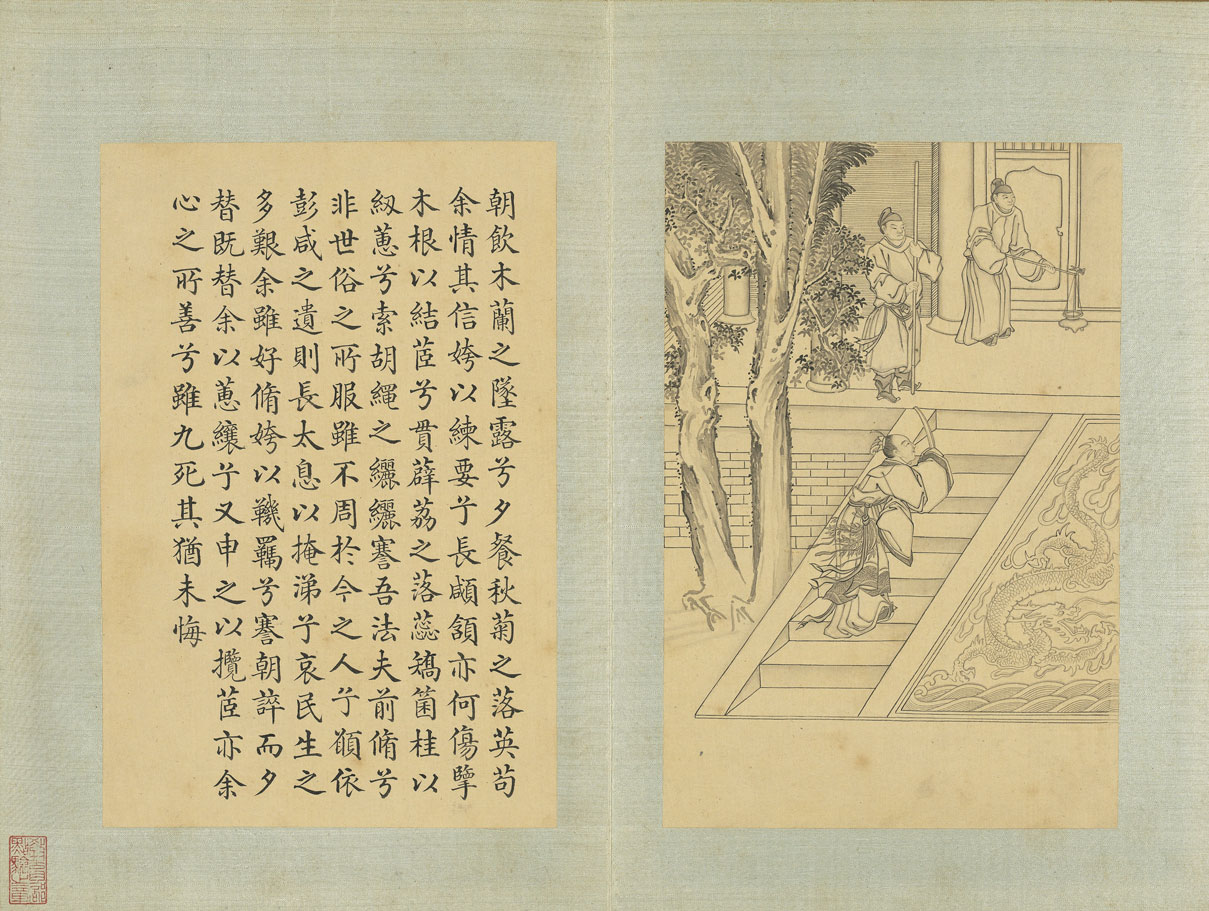 朝飲木蘭之墜露兮夕餐秋菊之落英苟
余情其信姱以練要兮長顑頷亦何傷擥
木根以結茝兮貫薜荔之落蕊矯菌桂以
紉蕙兮索胡繩之纚纚謇吾法夫前脩兮
非世俗之所服雖不周於今之人兮願依
彭咸之遺則長太息以掩涕兮哀民生之
多艱余雖好脩姱以鞿羈兮謇朝誶而夕
替既替余以蕙纕兮又申之以攬茝亦余
心之所善兮雖九死其猶未悔